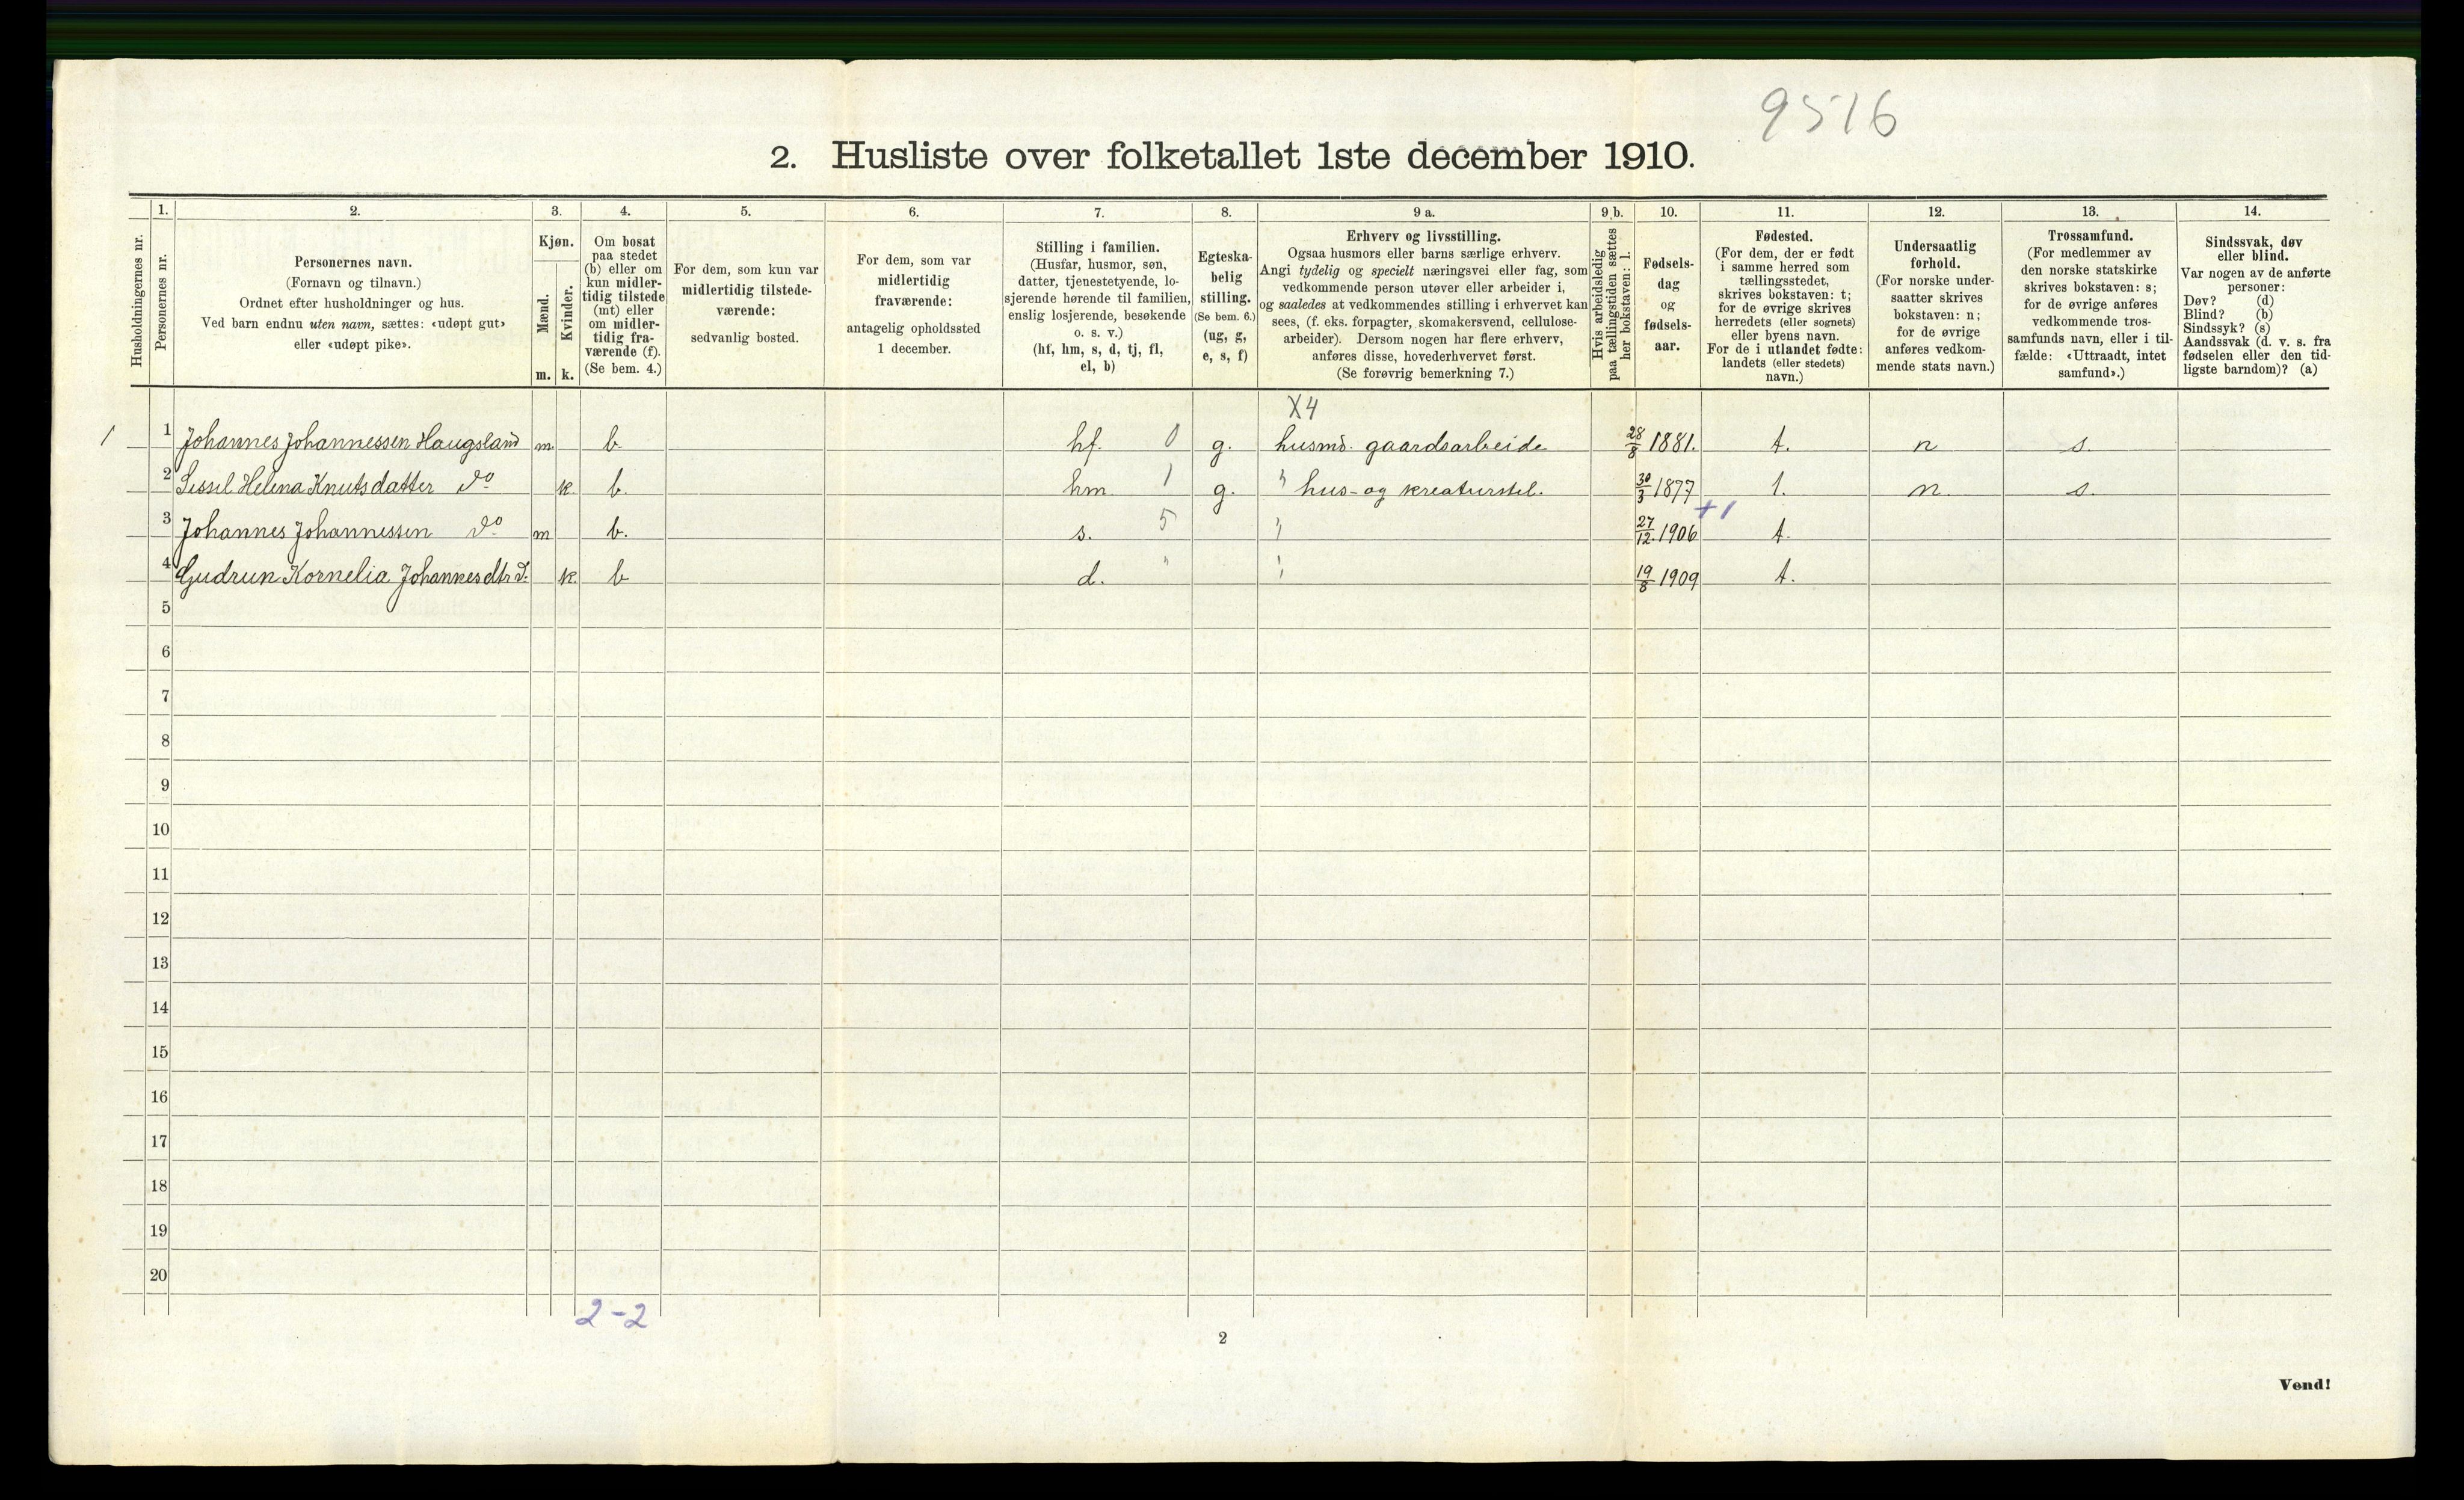 9516
2. Husliste over folketallet 1ste december 1910.
Husholdningernes nr.
1.
Personernes nr.
2.
Personernes navn.
(Fornavn og tilnavn.)
Ordnet efter husholdninger og hus.
Ved barn endnu uten navn, sættes: «udøpt gut»
eller «udøpt pike».
3.
Kjøn.
Mænd.
Kvinder.
m. k.
4.
Om bosat
paa stedet
(b) eller om
kun midler-
tidig tilstede
(mt) eller
om midler-
tidig fra-
værende (f).
(Se bem. 4.)
5.
For dem, som kun var
midlertidig tilstede-
værende:
sedvanlig bosted.
6.
For dem, som var
midlertidig
fraværende:
antagelig opholdssted
1 december.
7.
Stilling i familien.
(Husfar, husmor, søn,
datter, tjenestetyende, lo-
sjerende hørende til familien,
enslig losjerende, besøkende
o. s. v.)
(hf, hm, s, d, tj, fl,
el, b)
8.
Egteska-
belig
stilling.
(Se bem. 6.)
(ug, g,
e, s, f)
9 a.
Erhverv og livsstilling.
Ogsaa husmors eller barns særlige erhverv.
Angi tydelig og specielt næringsvei eller fag, som
vedkommende person utøver eller arbeider i,
og saaledes at vedkommendes stilling i erhvervet kan
sees, (f. eks. forpagter, skomakersvend, cellulose-
arbeider). Dersom nogen har flere erhverv,
anføres disse, hovederhvervet først.
(Se forøvrig bemerkning 7.)
9 b.
Hvis arbeidsledig
paa tællingstiden sættes
her bokstaven: l.
10.
Fødsels-
dag
og
fødsels-
aar.
11.
Fødested.
(For dem, der er født
i samme herred som
tællingsstedet,
skrives bokstaven: t;
for de øvrige skrives
herredets (eller sognets)
eller byens navn.
For de i utlandet fødte:
landets (eller stedets)
navn.)
12.
Undersaatlig
forhold.
(For norske under-
saatter skrives
bokstaven: n;
for de øvrige
anføres vedkom-
mende stats navn.)
13.
Trossamfund.
(For medlemmer av
den norske statskirke
skrives bokstaven: s;
for de øvrige anføres
vedkommende tros-
samfunds navn, eller i til-
fælde: «Uttraadt, intet
samfund».)
14.
Sindssvak, døv
eller blind.
Var nogen av de anførte
personer:
Døv? (d)
Blind? (b)
Sindssyk? (s)
Aandssvak (d. v. s. fra
fødselen eller den tid-
ligste barndom)? (a)
X4
1 1 Johannes Johannessen Haugsland m b. hf. 0 g. husmd. gaardsarbeide 28/8 1881. t. n s.
2 Sissel Helena Knutsdatter do k. b. hm 1 g. " hus- og kreaturstel. 30/3 1877 t. n. s.
+1
3 Johannes Johannessen do m b. s. 5 " 27/12. 1906 t.
4 Gudrun Kornelia Johannesdtr d. k. b d. " " 19/8 1909 t.
5
6
7
8
9
10
11
12
13
14
15
16
17
18
19
20
2-2
2
Vend!